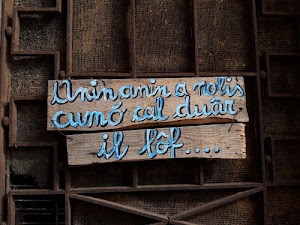 Anin anin a nolis
cumò cal duâr
il lôf....